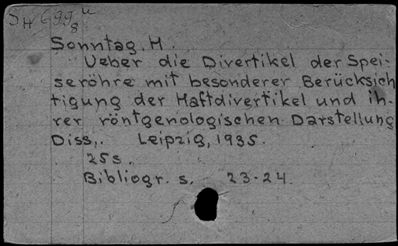 Sonntag. H.
Ueber die Divertikel der Spei-
seröhre mit besonderer Berücksich
tigung der Haftdivertikel und ih-
rer röntgenologischen Darstellung
Diss,. Leipzig, 1935.
25s.
Bibliogr. s. 23-24.